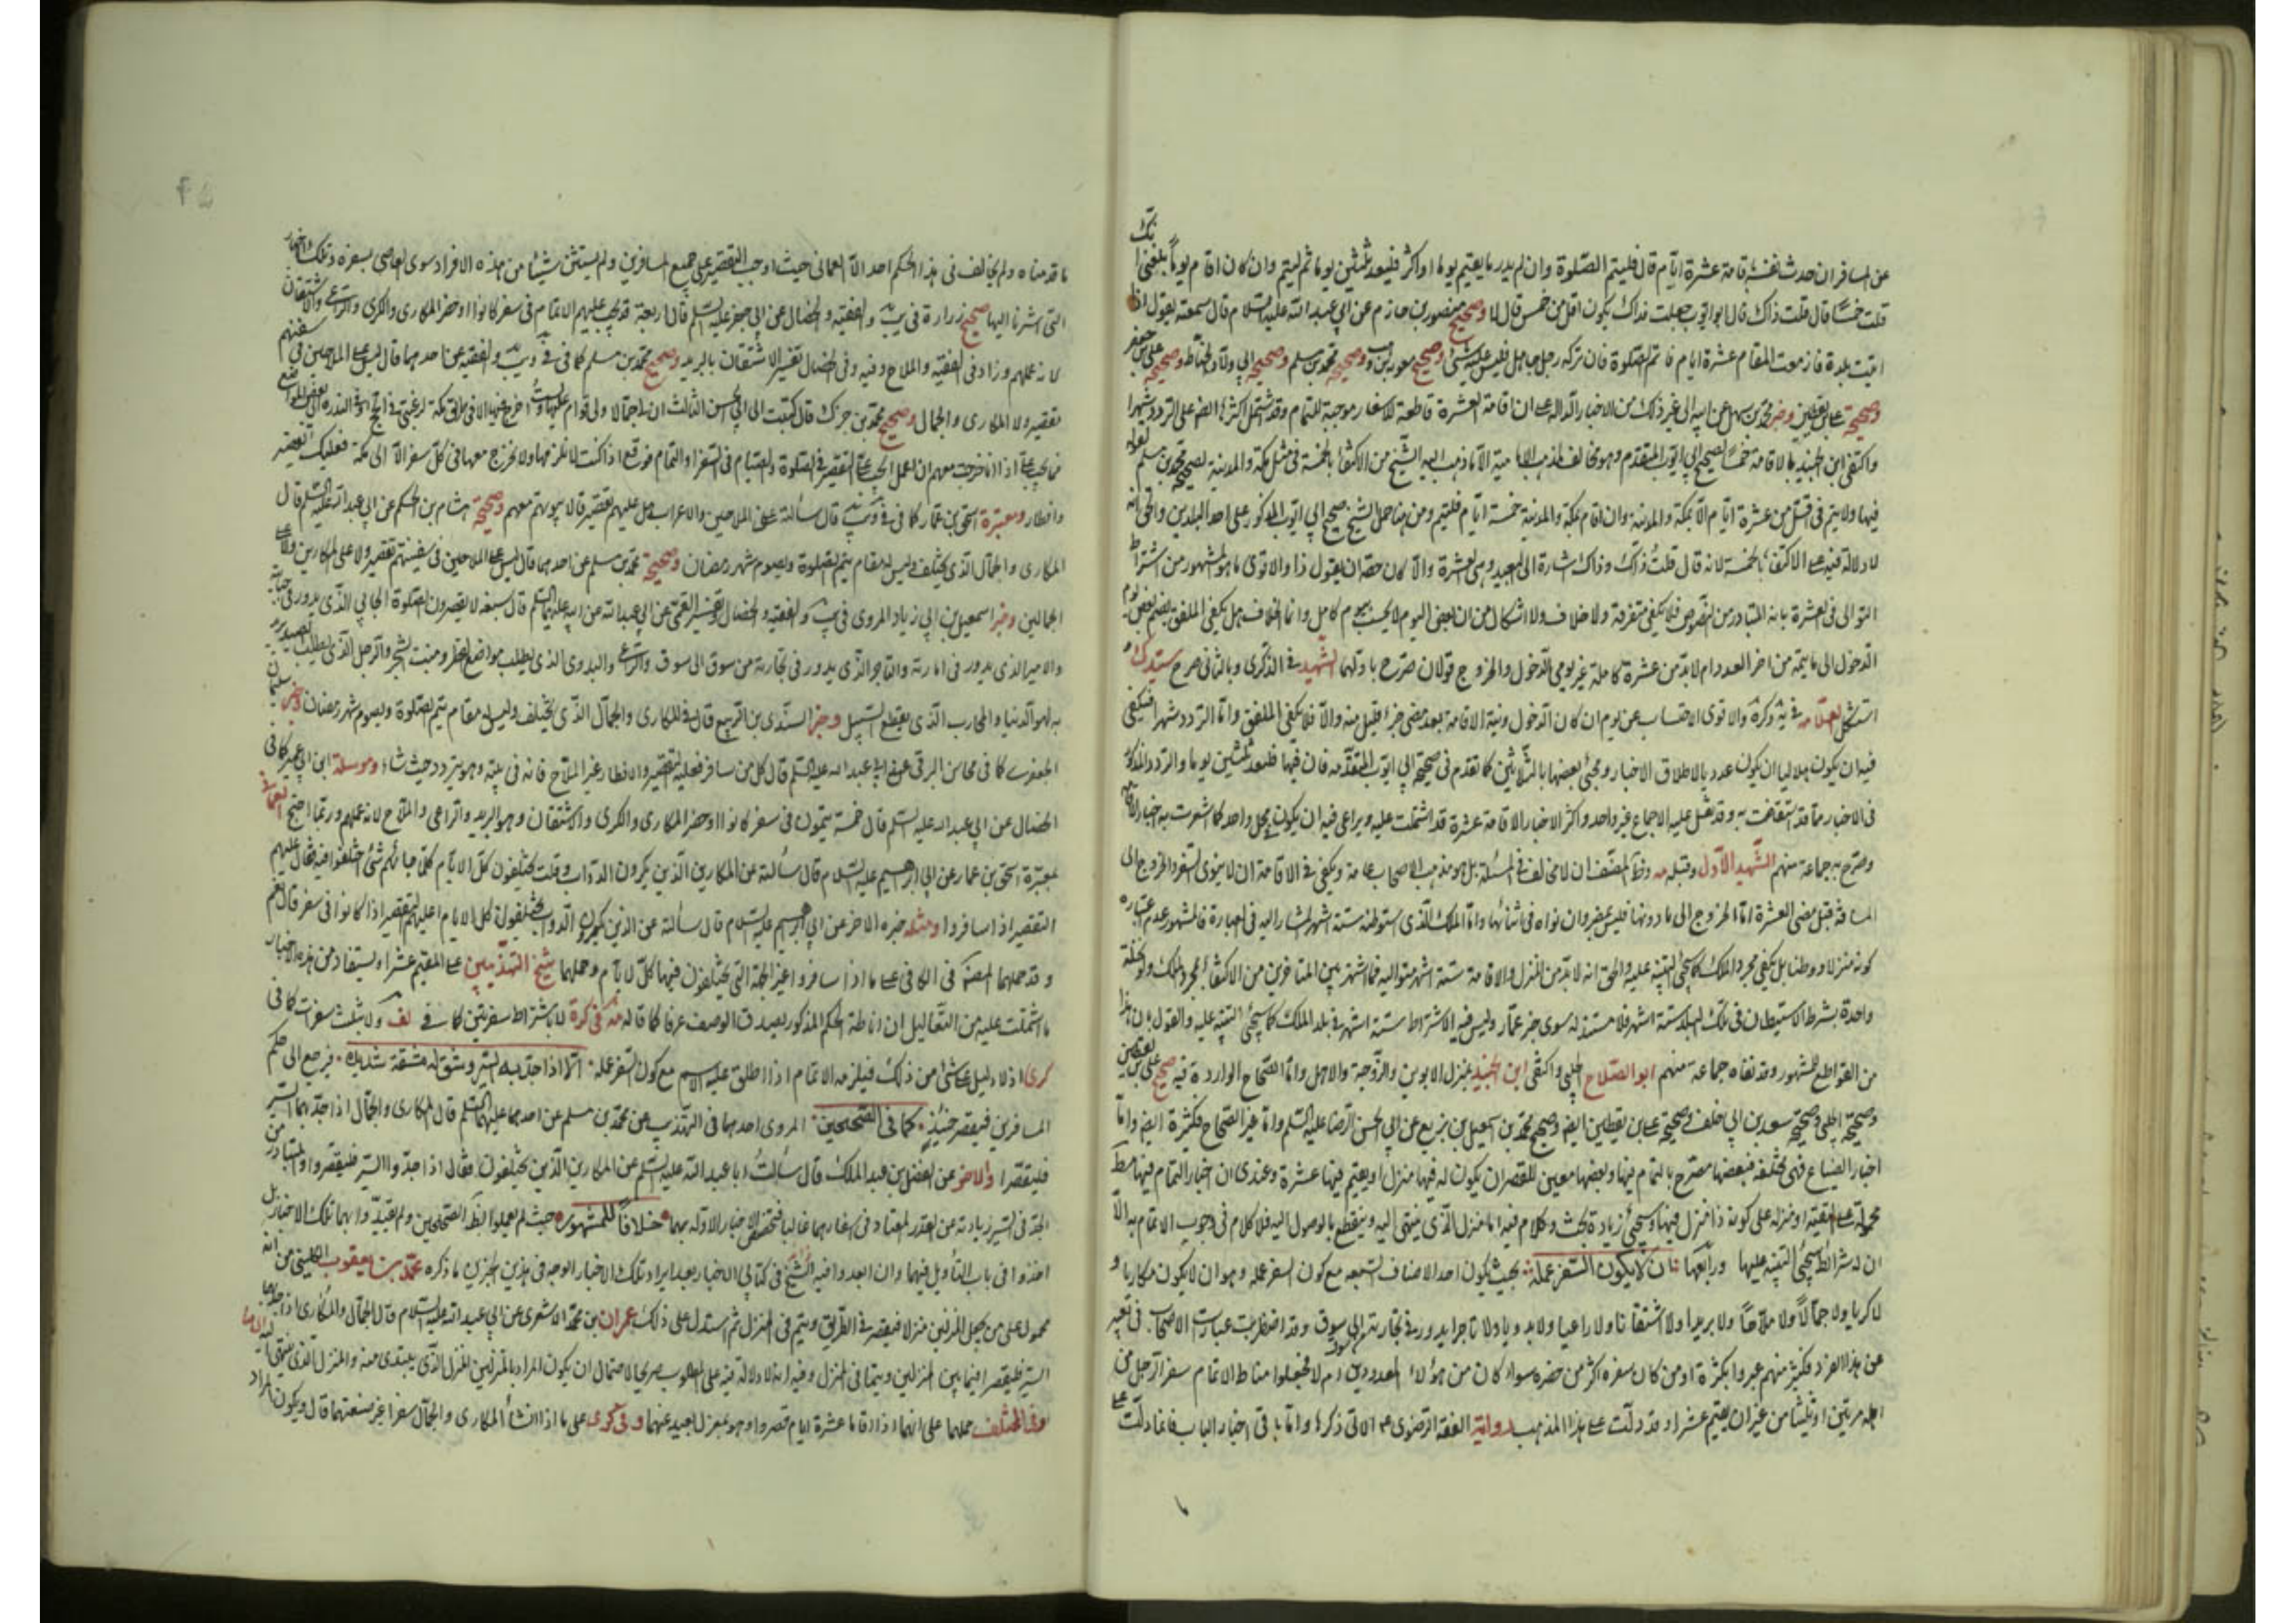 عن المسافر ان حدث نفسه باقامة عشرة ايام قال فليتم الصلوة وان لم يدر ما يقيم يوما او اكثر فليعد ثلثين يوما ثم ليتم وان كان اقام يوما بلغني انك
قلت خمسا قال قلت ذاك قال ابو ايوب جعلت فداك يكون اقل من خمس قال لا وصحيح منصور بن حازم عن ابي عبد الله عليه السلام قال سمعته يقول اذا
اتيت بلدة فازمعت المقام عشرة ايام فاتم الصلوة فان تركه رجل جاهل فليس عليه شيء وصحيح معوية بن وهب وصحيحة محمد بن مسلم وصحيحة ابي ولاد الحناط وصحيحة علي بن جعفر
وصحيحة علي بن يقطين وخبر محمد بن سهل عن ابيه الى غير ذلك من الاخبار الدالة على ان اقامة العشرة قاطعة للاسفار موجبة للتمام وقد اشتمل اكثرها ايضا على التردد شهرا
واكتفى ابن الجنيد بالاقامة خمسا لصحيح ابي ايوب المتقدم وهو مخالف لمذهب الامامية الا ما ذهب اليه الشيخ من الاكتفاء بالخمسة في مثل مكة والمدينة لصحيحة محمد بن مسلم لقوله
فيها ولا يتم في اقل من عشرة ايام الا بمكة والمدينة وان اقام بمكة والمدينة خمسة ايام فليتم ومن هنا حمل الشيخ صحيح ابي ايوب المذكور على احد البلدين والحق انه
لا دلالة فيه على الاكتفاء بالخمسة لانه قال قلت ذاك وذاك اشارة الى البعيد وهي العشرة والا كان حقه ان يقول ذا والاقوى ما هو المشهور من اشتراط
التوالي في العشرة بانه المتبادر من النصوص فلا يكفي متفرقة ولا خلاف ولا اشكال من ان بعض اليوم لا يحسب بيوم كامل وانما الخلاف هل يكفي الملفق بضم بعض يوم
الدخول الى ما يتمه من اخر العدد ام لا بد من عشرة كاملة غير يومي الدخول والخروج قولان صرح باولهما الشهيد في الذكرى وبالثاني صرح سيد ك و
استشكل العلامة في ية وكرة والاقوى الاحتساب عن يوم ان كان الدخول ونية الاقامة بعد مضي جزء قليل منه والا فلا يكفي الملفق واما التردد شهرا فيكفي
فيه ان يكون هلاليا ان يكون عدد بالاطلاق الاخبار ومجئ بعضها بالثلاثين كما تقدم في صحيحة ابي ايوب المتقدمة فان فيها فليعد ثلثين يوما والتردد المذكور
في الاخبار مما قد استفاضت به وقد نقل عليه الاجماع غير واحد واكثر الاخبار الاقامة عشرة قد اشتملت عليه ويراعى فيه ان يكون بمحل واحد كما اشعرت به اخبار الاقامة
وصرح به جماعة منهم الشهيد الاول وقبله مه وظ المصنف ان لا مخالف في المسئلة بل هو مذهب الاصحاب عامة ويكفي في الاقامة ان لا ينوي السفر والخروج الى
المسافة قبل مضي العشرة اما الخروج الى ما دونها فليس بمضر وان نواه في اثنائها واما الملك الذي استوطنه ستة اشهر المشار اليه في العبارة فالمشهور عدم اعتباره
كونه منزلا ووطنا بل يكفي مجرد الملك كما سيجئ التنبيه عليه والحق انه لا بد من المنزل والاقامة ستة اشهر متوالية فما اشتهر بين المتاخرين من الاكتفاء بمجرد الملك ولو نخلة
واحدة بشرط الاستيطان في تلك البلد ستة اشهر فلا مستند له سوى خبر عمار وليس فيه الاشتراط ستة اشهر في بلد الملك كما سيجئ التنبيه عليه والقول بان هذا
من القواطع المشهور وقد نفاه جماعة منهم ابو الصلاح الحلبي واكتفى ابن الجنيد بمنزل الابوين والزوجة والاهل واما الصحاح الواردة فيه صحيح علي بن يقطين
وصحيحة الحلبي وصحيحة سعد بن ابي خلف وصحيحة علي بن يقطين ايضا وصحيح محمد بن اسمعيل بن بزيع عن ابي الحسن الرضا عليه السلم واما غير الصحاح فكثيرة ايضا واما
اخبار الضياع فهي مختلفة فبعضها مصرح بالتمام فيها وبعضها معين للقصر ان يكون له فيها منزل او يقيم فيها عشرة وعندي ان اخبار التمام فيها مط
محمولة على التقية او منزلة على كونه ذا منزل فيها وسيجئ زيادة بحث وكلام فيه اما منزل الذي ينتهي اليه وينقطع بالوصول اليه فلا كلام في وجوب الاتمام به الا
ان له شرائط سيجئ التنبيه عليها ورابعها ان لا يكون السفر عمله بحيث يكون احد الاصناف السبعه مع كون السفر عمله وهو ان لا يكون مكاريا و
لا كريا ولا جمالا ولا ملاحا ولا بريدا ولا اشتقانا ولا راعيا ولا بدويا ولا تاجرا يدور في تجارته الى سوق وقد اضطربت عبارات الاصحاب في تعبير
عن هذا الفرد فكثير منهم عبروا بكثرة او من كان سفره اكثر من حضره سواء كان من هؤلاء المعدودين ام لا فجعلوا مناط الاتمام سفر الرجل من
اهله مرتين او ثلثا من غير ان يقيم عشرا وقد دلت على هذا المذهب رواية الفقه الرضوي الاتي ذكرها واما باقي اخبار الباب فانما دلت على
ما قدمناه ولم يخالف في هذا الحكم احد الا العماني حيث اوجب التقصير على جميع المسافرين ولم يستثن شيئا من هذه الافراد سوى العاصي بسفره وتلك الاخبار
التي اشرنا اليها صحيح زرارة في يب والفقيه والخصال عن ابي جعفر عليه السلم قال اربعة قد يجب عليهم الاتمام في سفر كانوا او حضر المكاري والكري والراعي والاشتقان
لانه عملهم وزاد في الفقيه والملاح وفيه وفي الخصال تفسير الاشتقان بالبريد وصحيح محمد بن مسلم كما في في ويب والفقيه عن احدهما قال ليس على الملاحين في سفينتهم
تقصير ولا المكاري والجمال وصحيح محمد بن جزك قال كتبت الى ابي الحسن الثالث ان لي جمالا ولي قوام عليها ولست اخرج فيها الا في طريق مكة لرغبتي في الحج او في الندرة الى بعض المواضع
فما يجب علي اذا انا خرجت معهم ان اعمل ايجب علي التقصير في الصلوة والصيام في السفر او التمام فوقع اذا كنت لا تلزمها ولا تخرج معها في كل سفر الا الى مكة فعليك تقصير
وافطار ومعتبرة اسحق بن عمار كما في في ويب قال سألته عن الملاحين والاعراب هل عليهم تقصير قال لا بيوتهم معهم وصحيحة هشام بن الحكم عن ابي عبد الله عليه السلم قال
المكاري والجمال الذي يختلف وليس له مقام يتم الصلوة ويصوم شهر رمضان وصحيحة محمد بن مسلم عن احدهما قال ليس على الملاحين في سفينتهم تقصير ولا على المكارين ولا على
الجمالين وخبر اسمعيل بن ابي زياد المروي في يب والفقيه والخصال وتفسير القمي عن ابي عبد الله عن ابيه عليهما السلم قال سبعة لا يقصرون الصلوة الجابي الذي يدور في جبايته
والامير الذي يدور في امارته والتاجر الذي يدور في تجارته من سوق الى سوق والراعي والبدوي الذي يطلب مواضع القطر ومنبت الشجر والرجل الذي يطلب الصيد يريد
به لهو الدنيا والمحارب الذي يقطع السبيل وخبر السندي بن الربيع قال في المكاري والجمال الذي يختلف وليس له مقام يتم الصلوة ويصوم شهر رمضان وخبر سليمان
الجعفري كما في محاسن البرقي عن ابي عبد الله عليه السلم قال كل من سافر فعليه التقصير والافطار غير الملاح فانه في بيته وهو يتردد حيث شاء ومرسلة ابن ابي عمير كما في
الخصال عن ابي عبد الله عليه السلم قال خمسة يتمون في سفر كانوا او حضر المكاري والكري والاشتقان وهو البريد والراعي والملاح لانه عملهم وربما احتج العماني
بمعتبرة اسحق بن عمار عن ابي ابرهيم عليه السلام قال سألته عن المكارين الذين يكرون الدواب وقلت يختلفون كل الايام كلما جائهم شئ اختلفوا فيه فقال عليهم
التقصير اذا سافروا ومثله خبره الاخر عن ابي ابرهيم عليه السلام قال سألته عن الذين يكرون الدواب يختلفون كل الايام اعليهم التقصير اذا كانوا في سفر قال نعم
وقد حملهما المصنف في الكافي على ما اذا سافروا غير الجهة التي يختلفون فيها كل الايام وحملهما شيخ التهذيبين على المقيم عشرا ويستفاد من هذه الاخبار
ما اشتملت عليه من التعاليل ان اناطة الحكم المذكور بصدق الوصف عرفا كما قاله مه في كرة لا باشتراط سفرتين كما في لف ولا بثلث سفرات كما في
كرى اذ لا دليل على شئ من ذلك فيلزمه الاتمام اذا اطلق عليه الاسم مع كون السفر عمله الا اذا جد به السير وشق له مشقة شديدة فيرجع الى حكم
المسافرين فيقصر حينئذ كما في الصحيحين المروي احدهما في التهذيب عن محمد بن مسلم عن احدهما عليهما السلم قال المكاري والجمال اذا جد بهما السير
فليقصرا والاخر عن الفضل بن عبد الملك قال سألت ابا عبد الله عليه السلم عن المكارين الذين يختلفون فقال اذا جدوا السير فليقصروا والمتبادر من
الجد في السير زيادته عن القدر المعتاد في اسفارهما غالبا فتخصص الاخبار الاولة بهما خلافا للمشهور حيث لم يعملوا بظ الصحيحين ولم يقيدوا بهما تلك الاخبار بل
اخذوا في باب التأويل فيهما وان ابعدوا فيه الشيخ في كتابي الاخبار بعد ايراد تلك الاخبار الوجه في هذين الخبرين ما ذكره محمد بن يعقوب الكليني من انه
محمول على من يجعل المنزلين منزلا فيقصر في الطريق ويتم في المنزل ثم استدل على ذلك بعمران بن محمد الاشعري عن ابي عبد الله عليه السلام قال الجمال والمكاري اذا جد بهما
السير فليقصرا فيما بين المنزلين ويتما في المنزل وفيه انه لا دلالة فيه على المطلوب صريحا لاحتمال ان يكون المراد بالمنزلين المنزل الذي يبتدى منه والمنزل الذي ينتهي اليه
وفي المختلف حملهما على انهما اذا اقاما عشرة ايام قصروا وهو بمعزل بعيد عنهما وفي كرى على ما اذا انشأ المكاري والجمال سفرا غير صنعتهما قال ويكون المراد